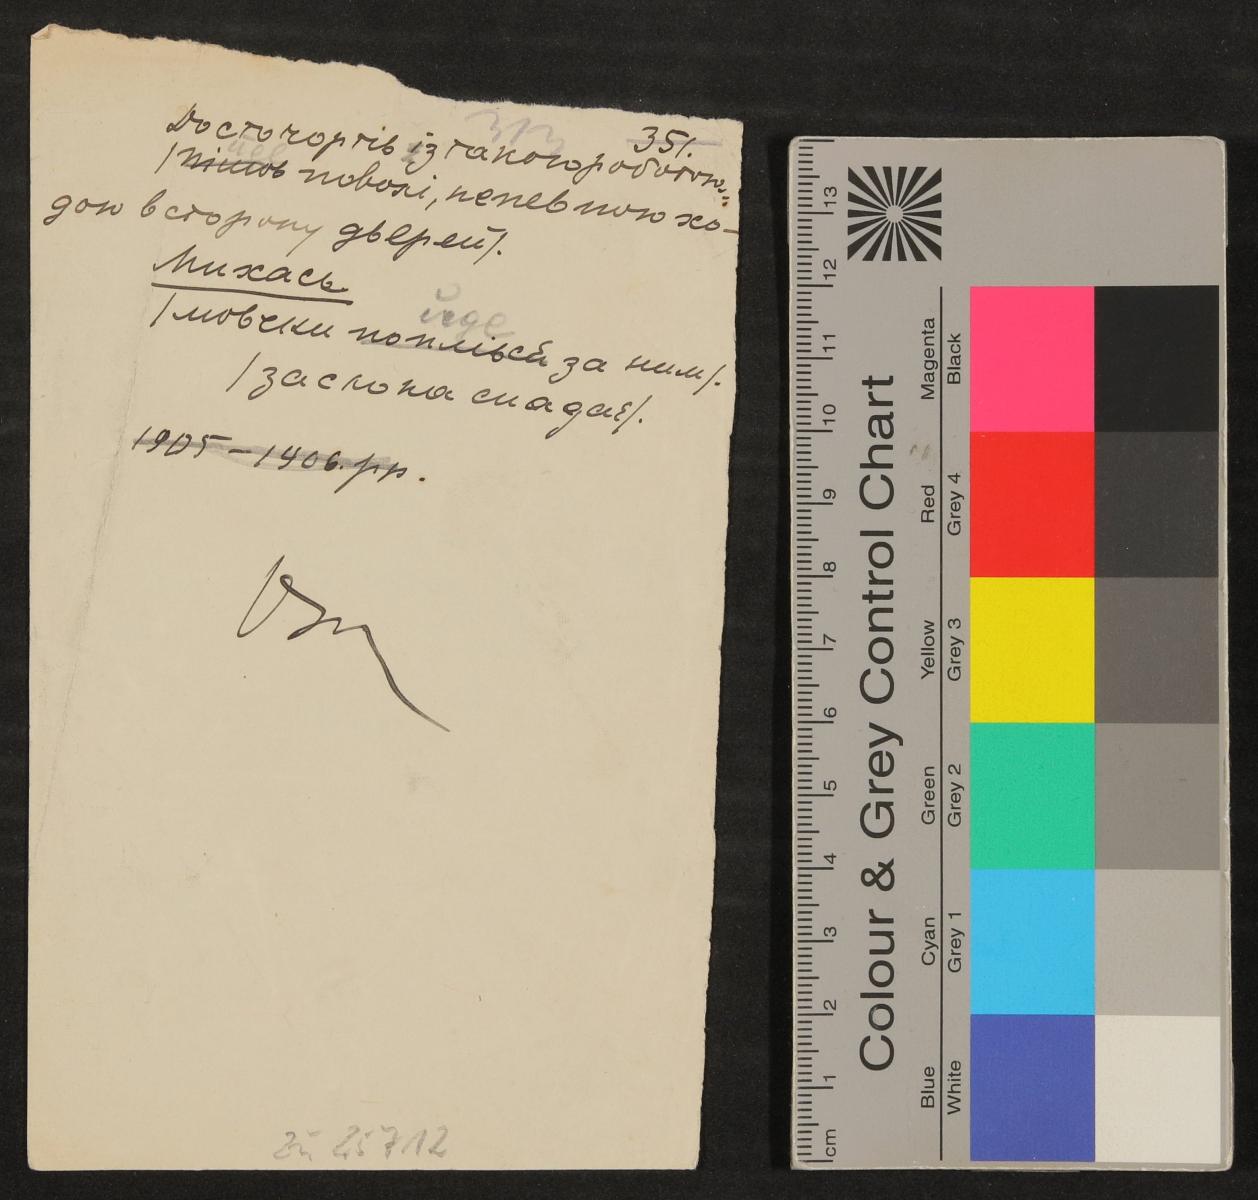 313
351.
До сто чортів із такого роботою!
йде
/пішов поволі, непевною хо-
дою в сторону дверей/.
Михась
йде
/мовчки поплівсй за ним/.
/заслона спадає/.
1905 – 1906. рр.
ZŃ 25712
13
12
11
10
9
8
7
6
5
4
3
2
1
cm
Colour & Grey Control Chart
Magenta
Black
Red
Grey 4
Yellow
Grey 3
Green
Grey 2
Cyan
Grey 1
Blue
White